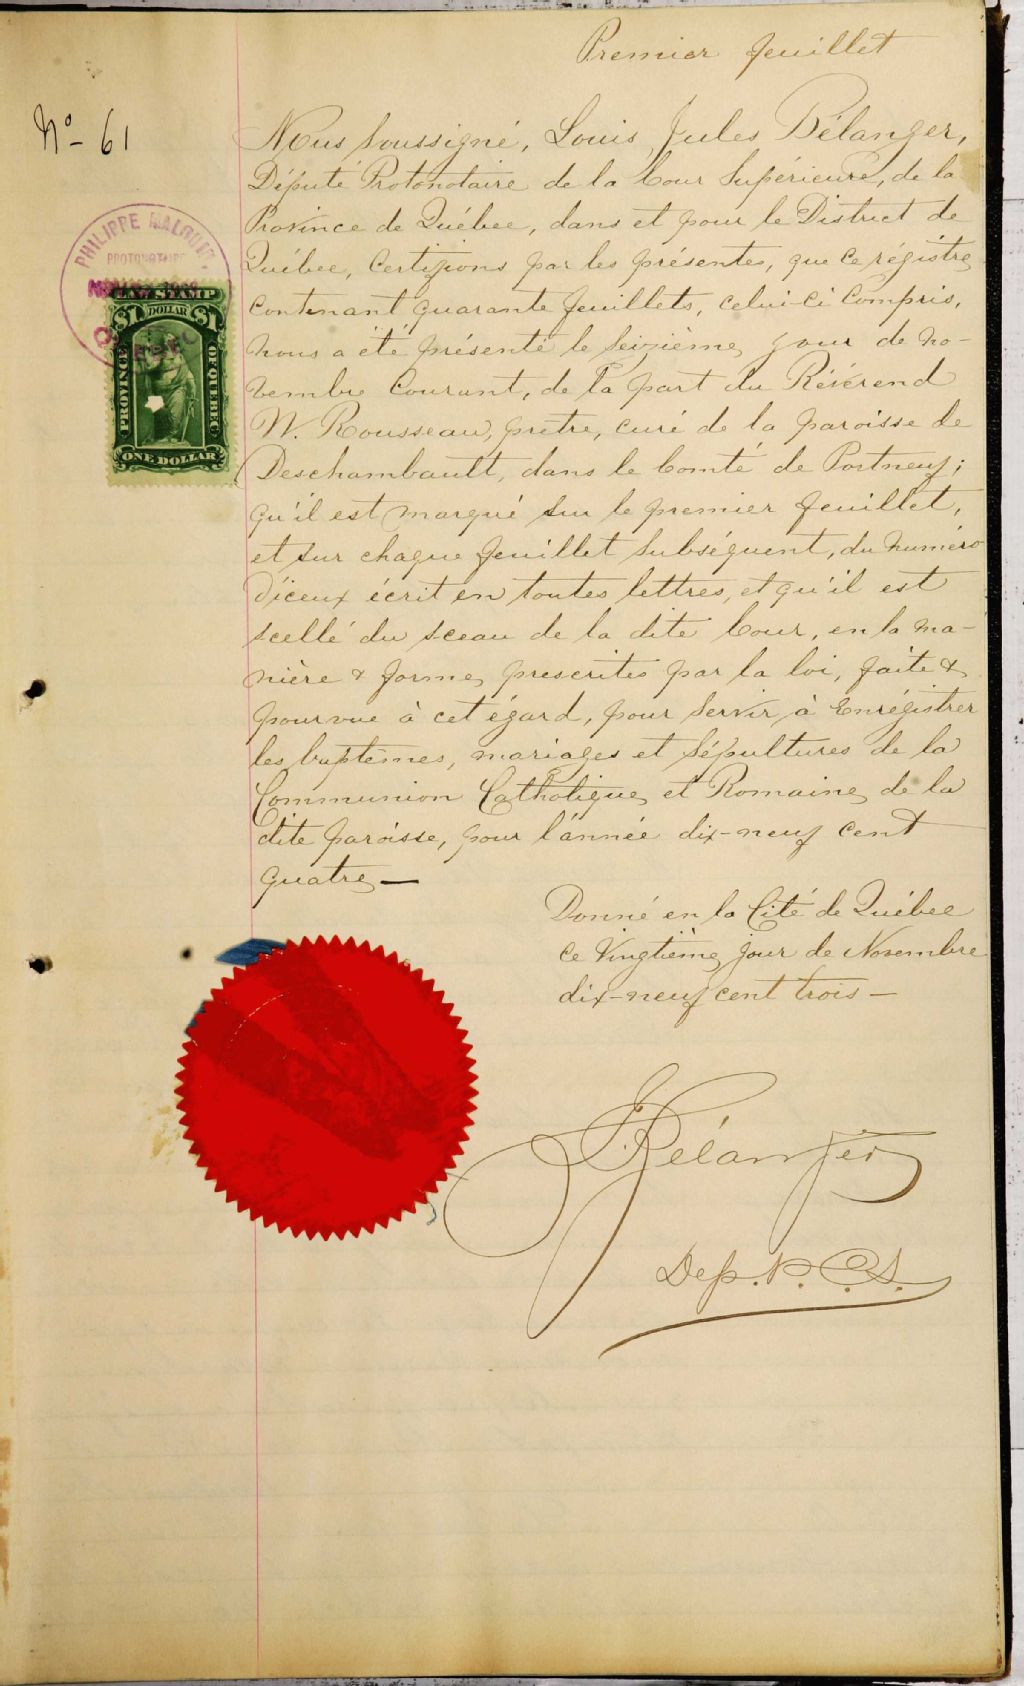 Premier feuillet
No - 61
Nous soussigné, Louis Jules Bélanger,
Député Protonotaire de la Cour Supérieure, de la
Province de Québec, dans et pour le District de
Québec, Certifions par les présentes, que ce régistre
contenant quarante feuillets, celui-ci Compris,
nous a été présenté le Seizième jour de no-
vembre Courant, de la part du Révérend
N. Rousseau, prêtre, curé de la paroisse de
Deschambault, dans le Comté de Portneuf;
qu'il est marqué sur le premier feuillet,
et sur chaque feuillet subséquent, du numéro
d'iceux écrit en toutes lettres, et qu'il est
scellé du sceau de la dite Cour, en la ma-
nière & forme prescrites par la loi, faite &
pourvue à cet égard, pour servir à Enrégistrer
les baptêmes, mariages et sépultures de la
Communion Catholique et Romaine de la
dite paroisse, pour l'année dix-neuf cent
quatre —
PHILIPPE MALOUIN
PROTONOTAIRE
LAW STAMP
$1 DOLLAR $1
PROVINCE OF QUEBEC
ONE DOLLAR
Donné en la Cité de Québec
ce Vingtième jour de Novembre
dix-neuf cent trois —
Bélanger
Dep. P. C. S.